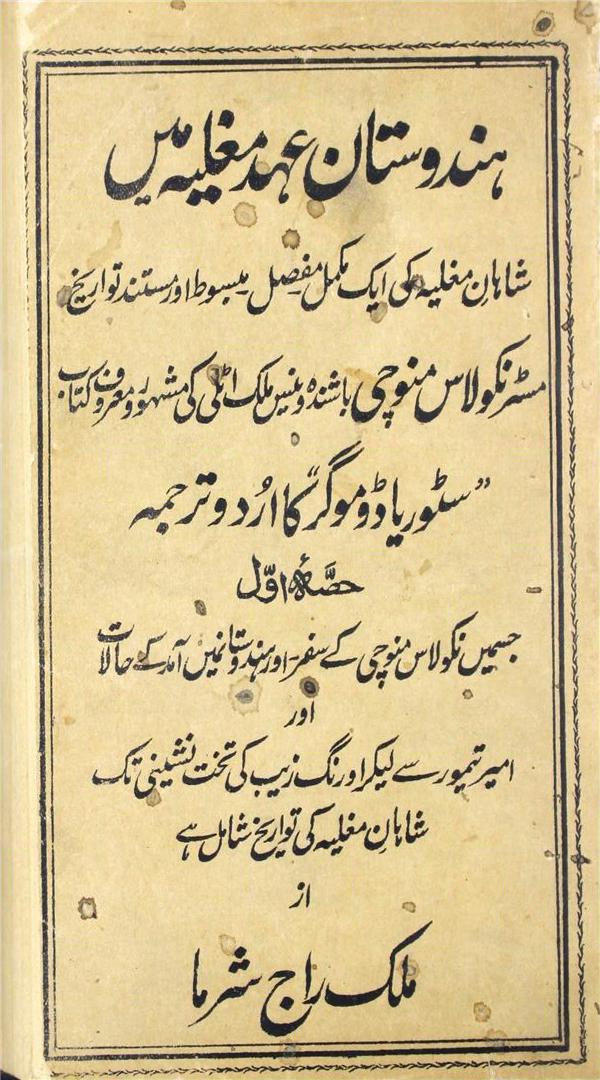 ہندوستان عہد مغلیہ میں
شاہانِ مغلیہ کی ایک مکمل مفصل۔ مبسوط اور مستند تواریخ
مسٹر نکولاس منوچی باشندہ وینس ملک اٹلی کی مشہور و معروف کتاب
"سٹوریا ڈو موگر" کا اُردو ترجمہ
حصّہ اوّل
جسمیں نکولاس منوچی کے سفر۔ اور ہندوستانمیں آمد کے حالات
اور
امیر تیمور سے لیکر اورنگ زیب کی تخت نشینی تک
شاہانِ مغلیہ کی تواریخ شامل ہے
از
ملک راج شرما